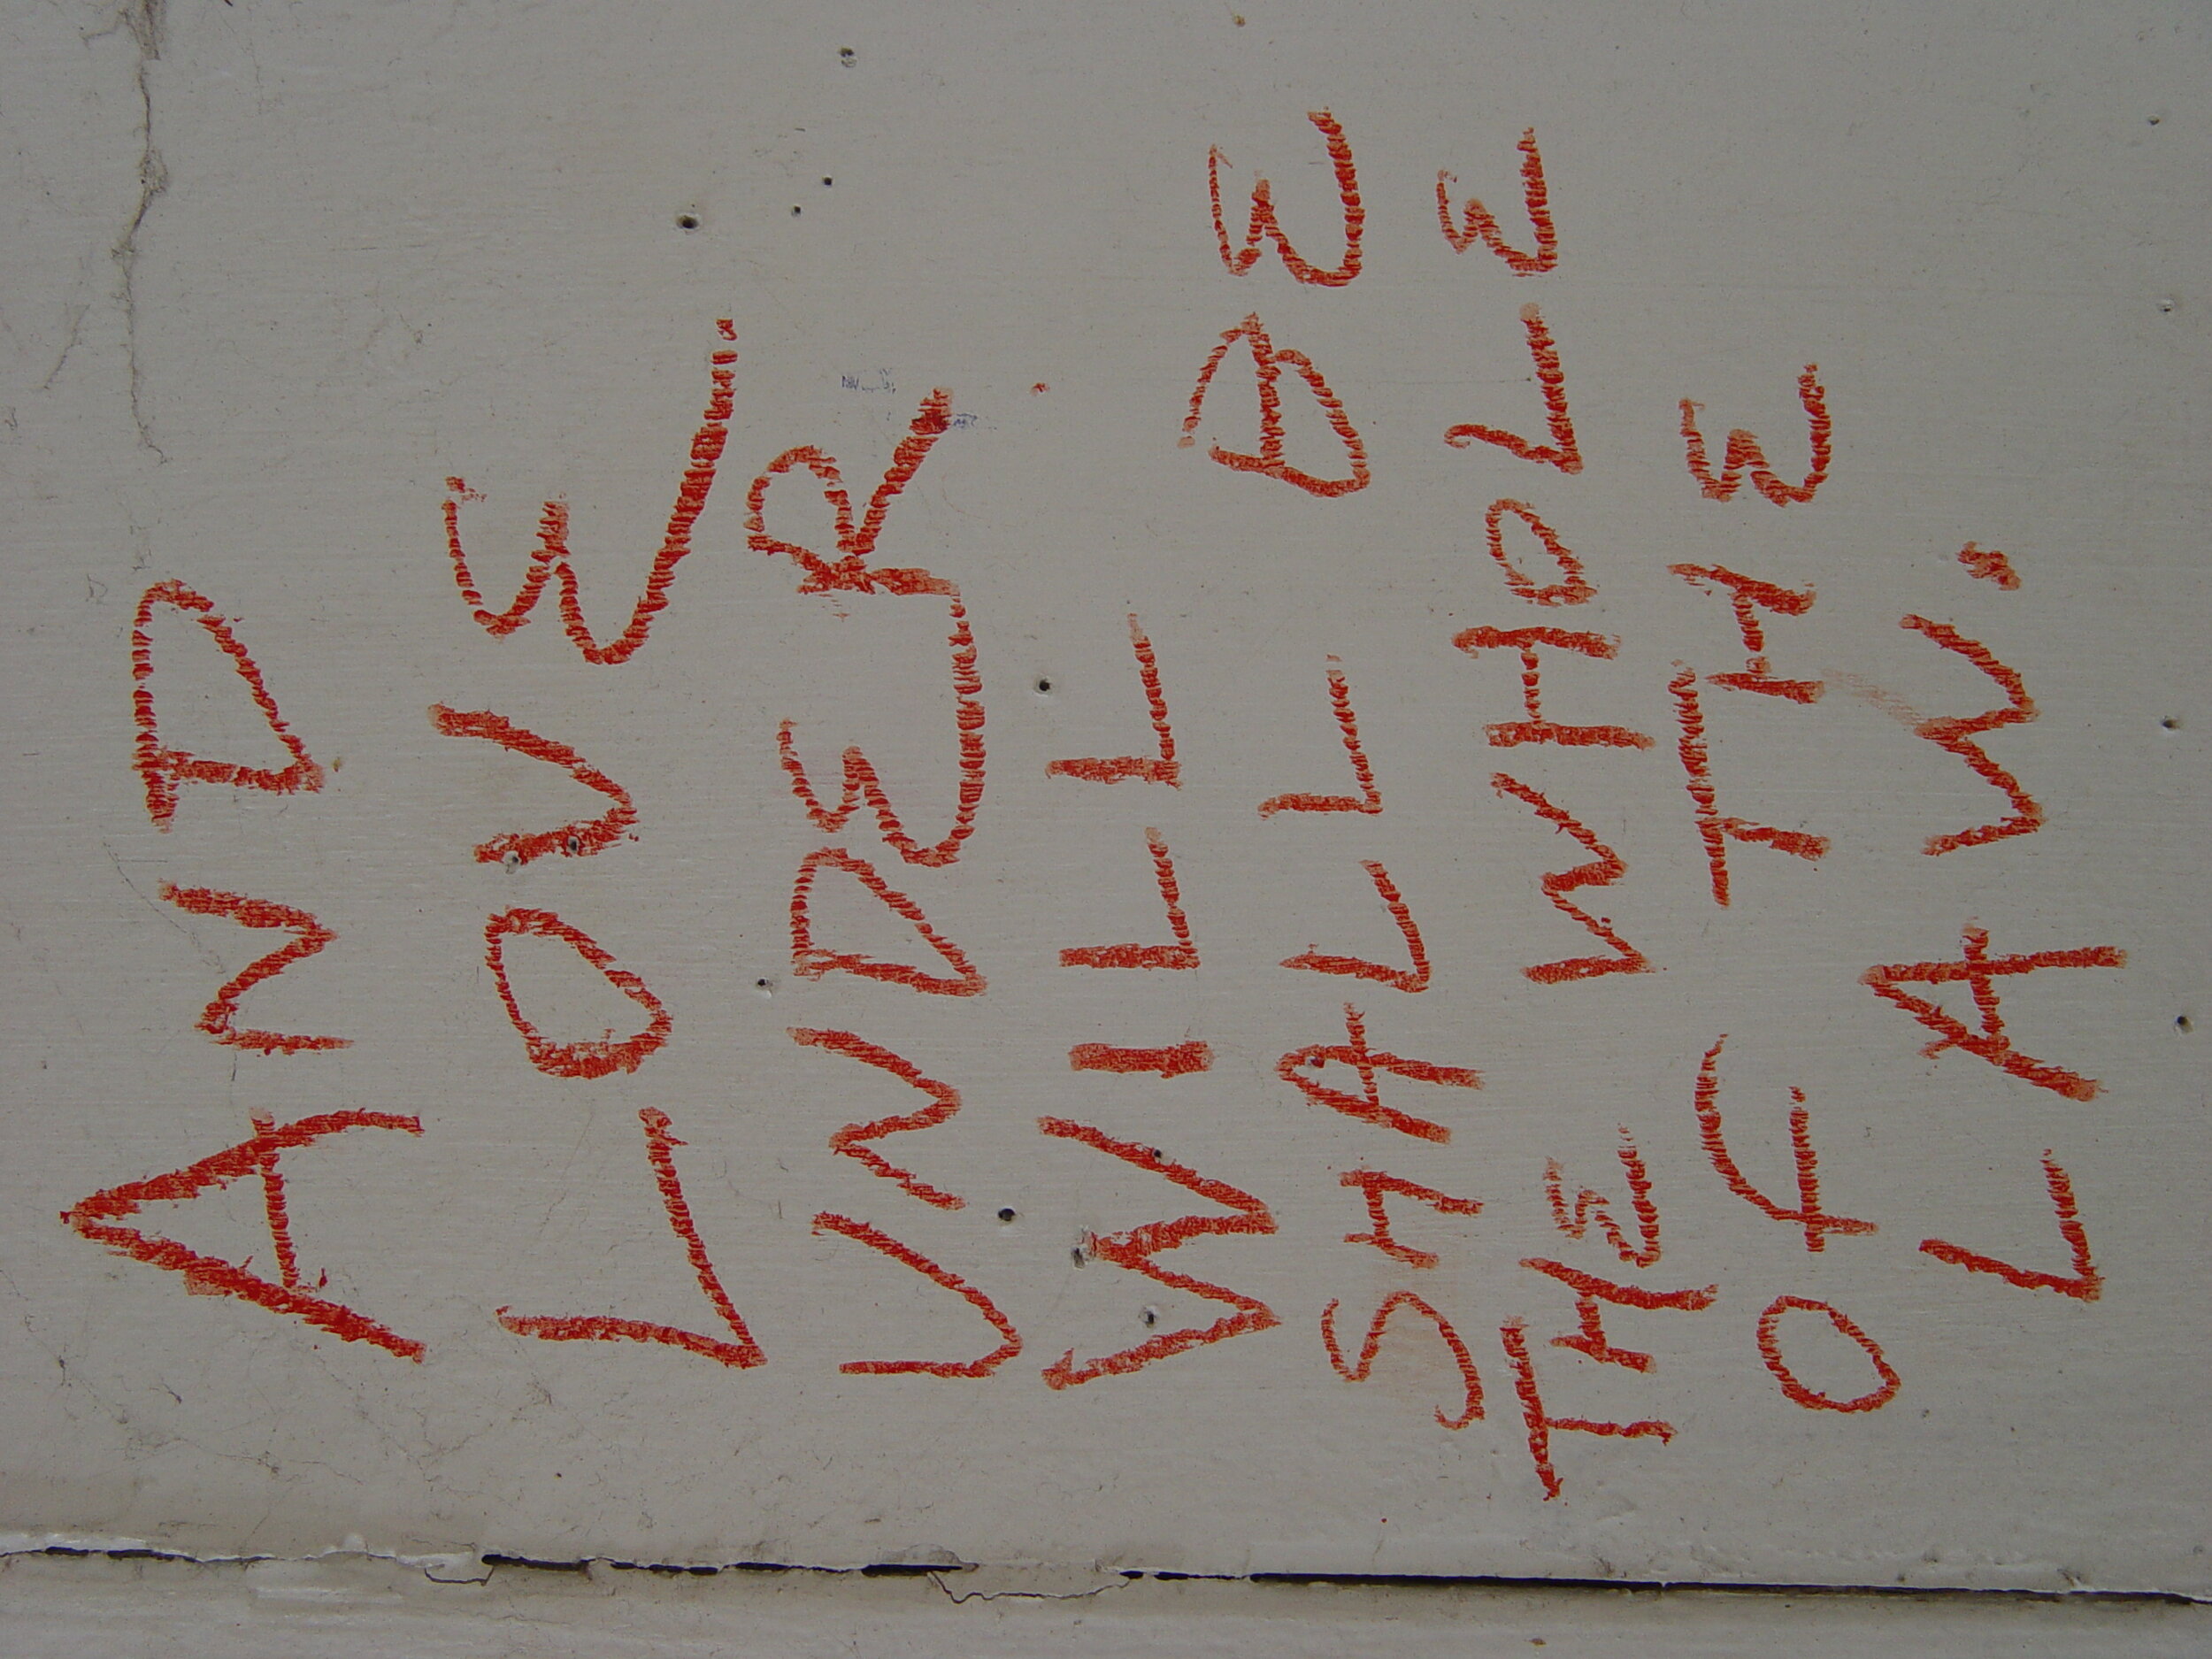 AND
LOVE.
UNDER
WILL
SHALL BE
THE WHOLE
OF THE
LAW.